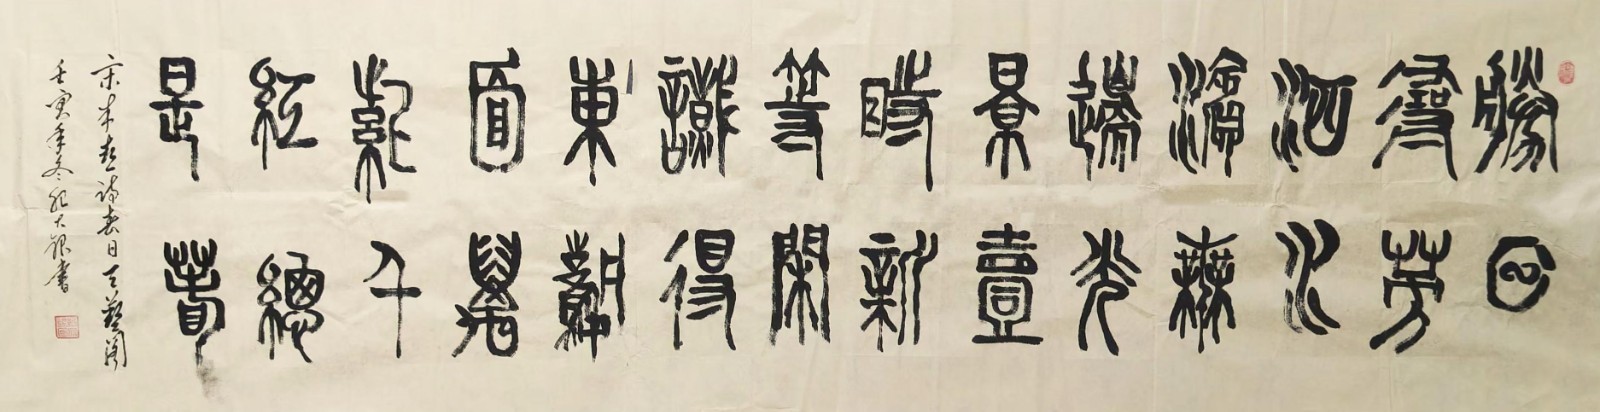 勝日
尋芳
泗水
濱無
邊光
景壹
時新
等閑
識得
東風
面萬
紫千
紅總
是春
宋朱熹詩春日
壬寅年冬 大 書